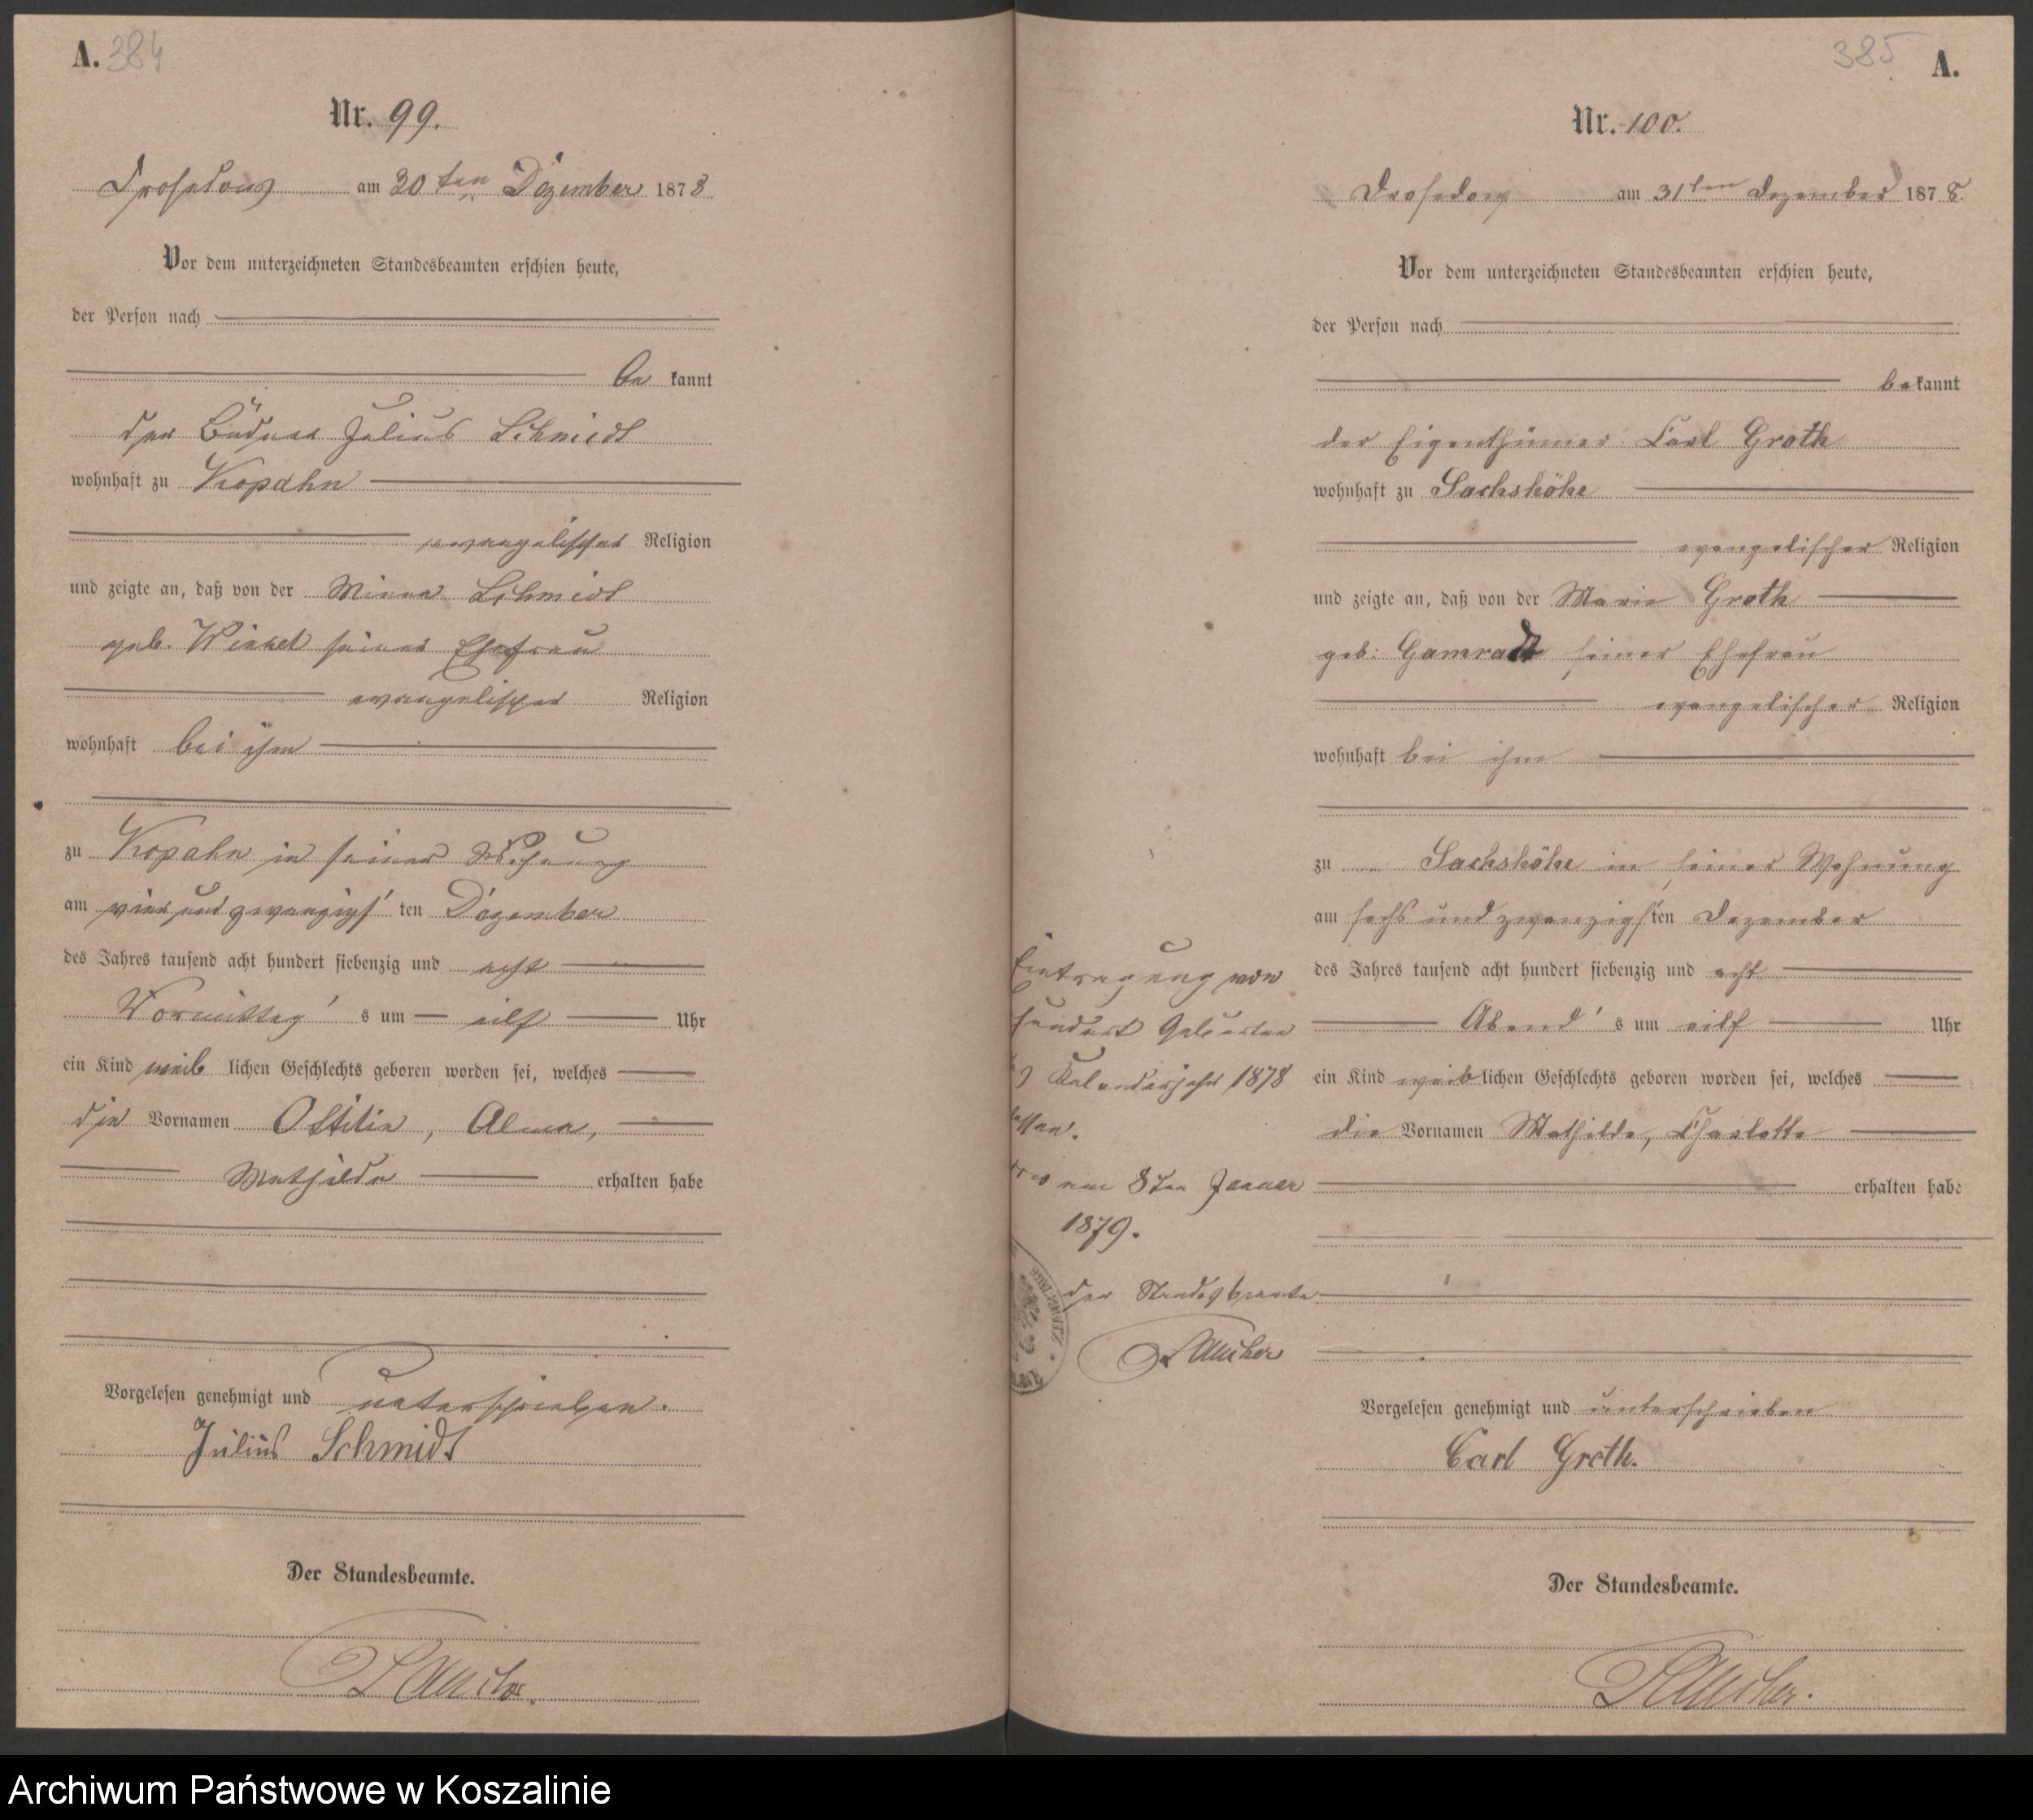 A. 384
Nr. 99.
Drosedow am 30ten Dezember 1878
Vor dem unterzeichneten Standesbeamten erschien heute,
der Person nach
be kannt
der Büdner Julius Schmidt
wohnhaft zu Kopahn
evangelischer Religion
und zeigte an, daß von der Minna Schmidt
geb. Winkel seiner Ehefrau
evangelischer Religion
wohnhaft bei ihm
zu Kopahn in seiner Wohnung
am vier und zwanzigs ten Dezember
des Jahres tausend acht hundert siebenzig und acht
Vormittag s um eilf Uhr
ein Kind weib lichen Geschlechts geboren worden sei, welches
die Vornamen Ottilie, Alma,
Mathilde erhalten habe
Vorgelesen genehmigt und unterschrieben.
Julius Schmidt
Der Standesbeamte.
385 A.
Nr. 100.
Drosedow am 31ten Dezember 1878.
Vor dem unterzeichneten Standesbeamten erschien heute,
der Person nach
be kannt
der Eigenthümer Carl Groth
wohnhaft zu Sachshöhe
evangelischer Religion
und zeigte an, daß von der Marie Groth
geb: Gamradt seiner Ehefrau
evangelischer Religion
wohnhaft bei ihm
zu Sachshöhe in seiner Wohnung
am sechs und zwanzigs ten Dezember
des Jahres tausend acht hundert siebenzig und acht
Abend s um eilf Uhr
ein Kind weib lichen Geschlechts geboren worden sei, welches
die Vornamen Mathilde, Charlotte
erhalten habe
Vorgelesen genehmigt und unterschrieben
Carl Groth.
Der Standesbeamte.
Eintragung von
hundert Geburten
Kalenderjahr 1878
am 8ten Januar
1879.
der Standesbeamte
Archiwum Państwowe w Koszalinie